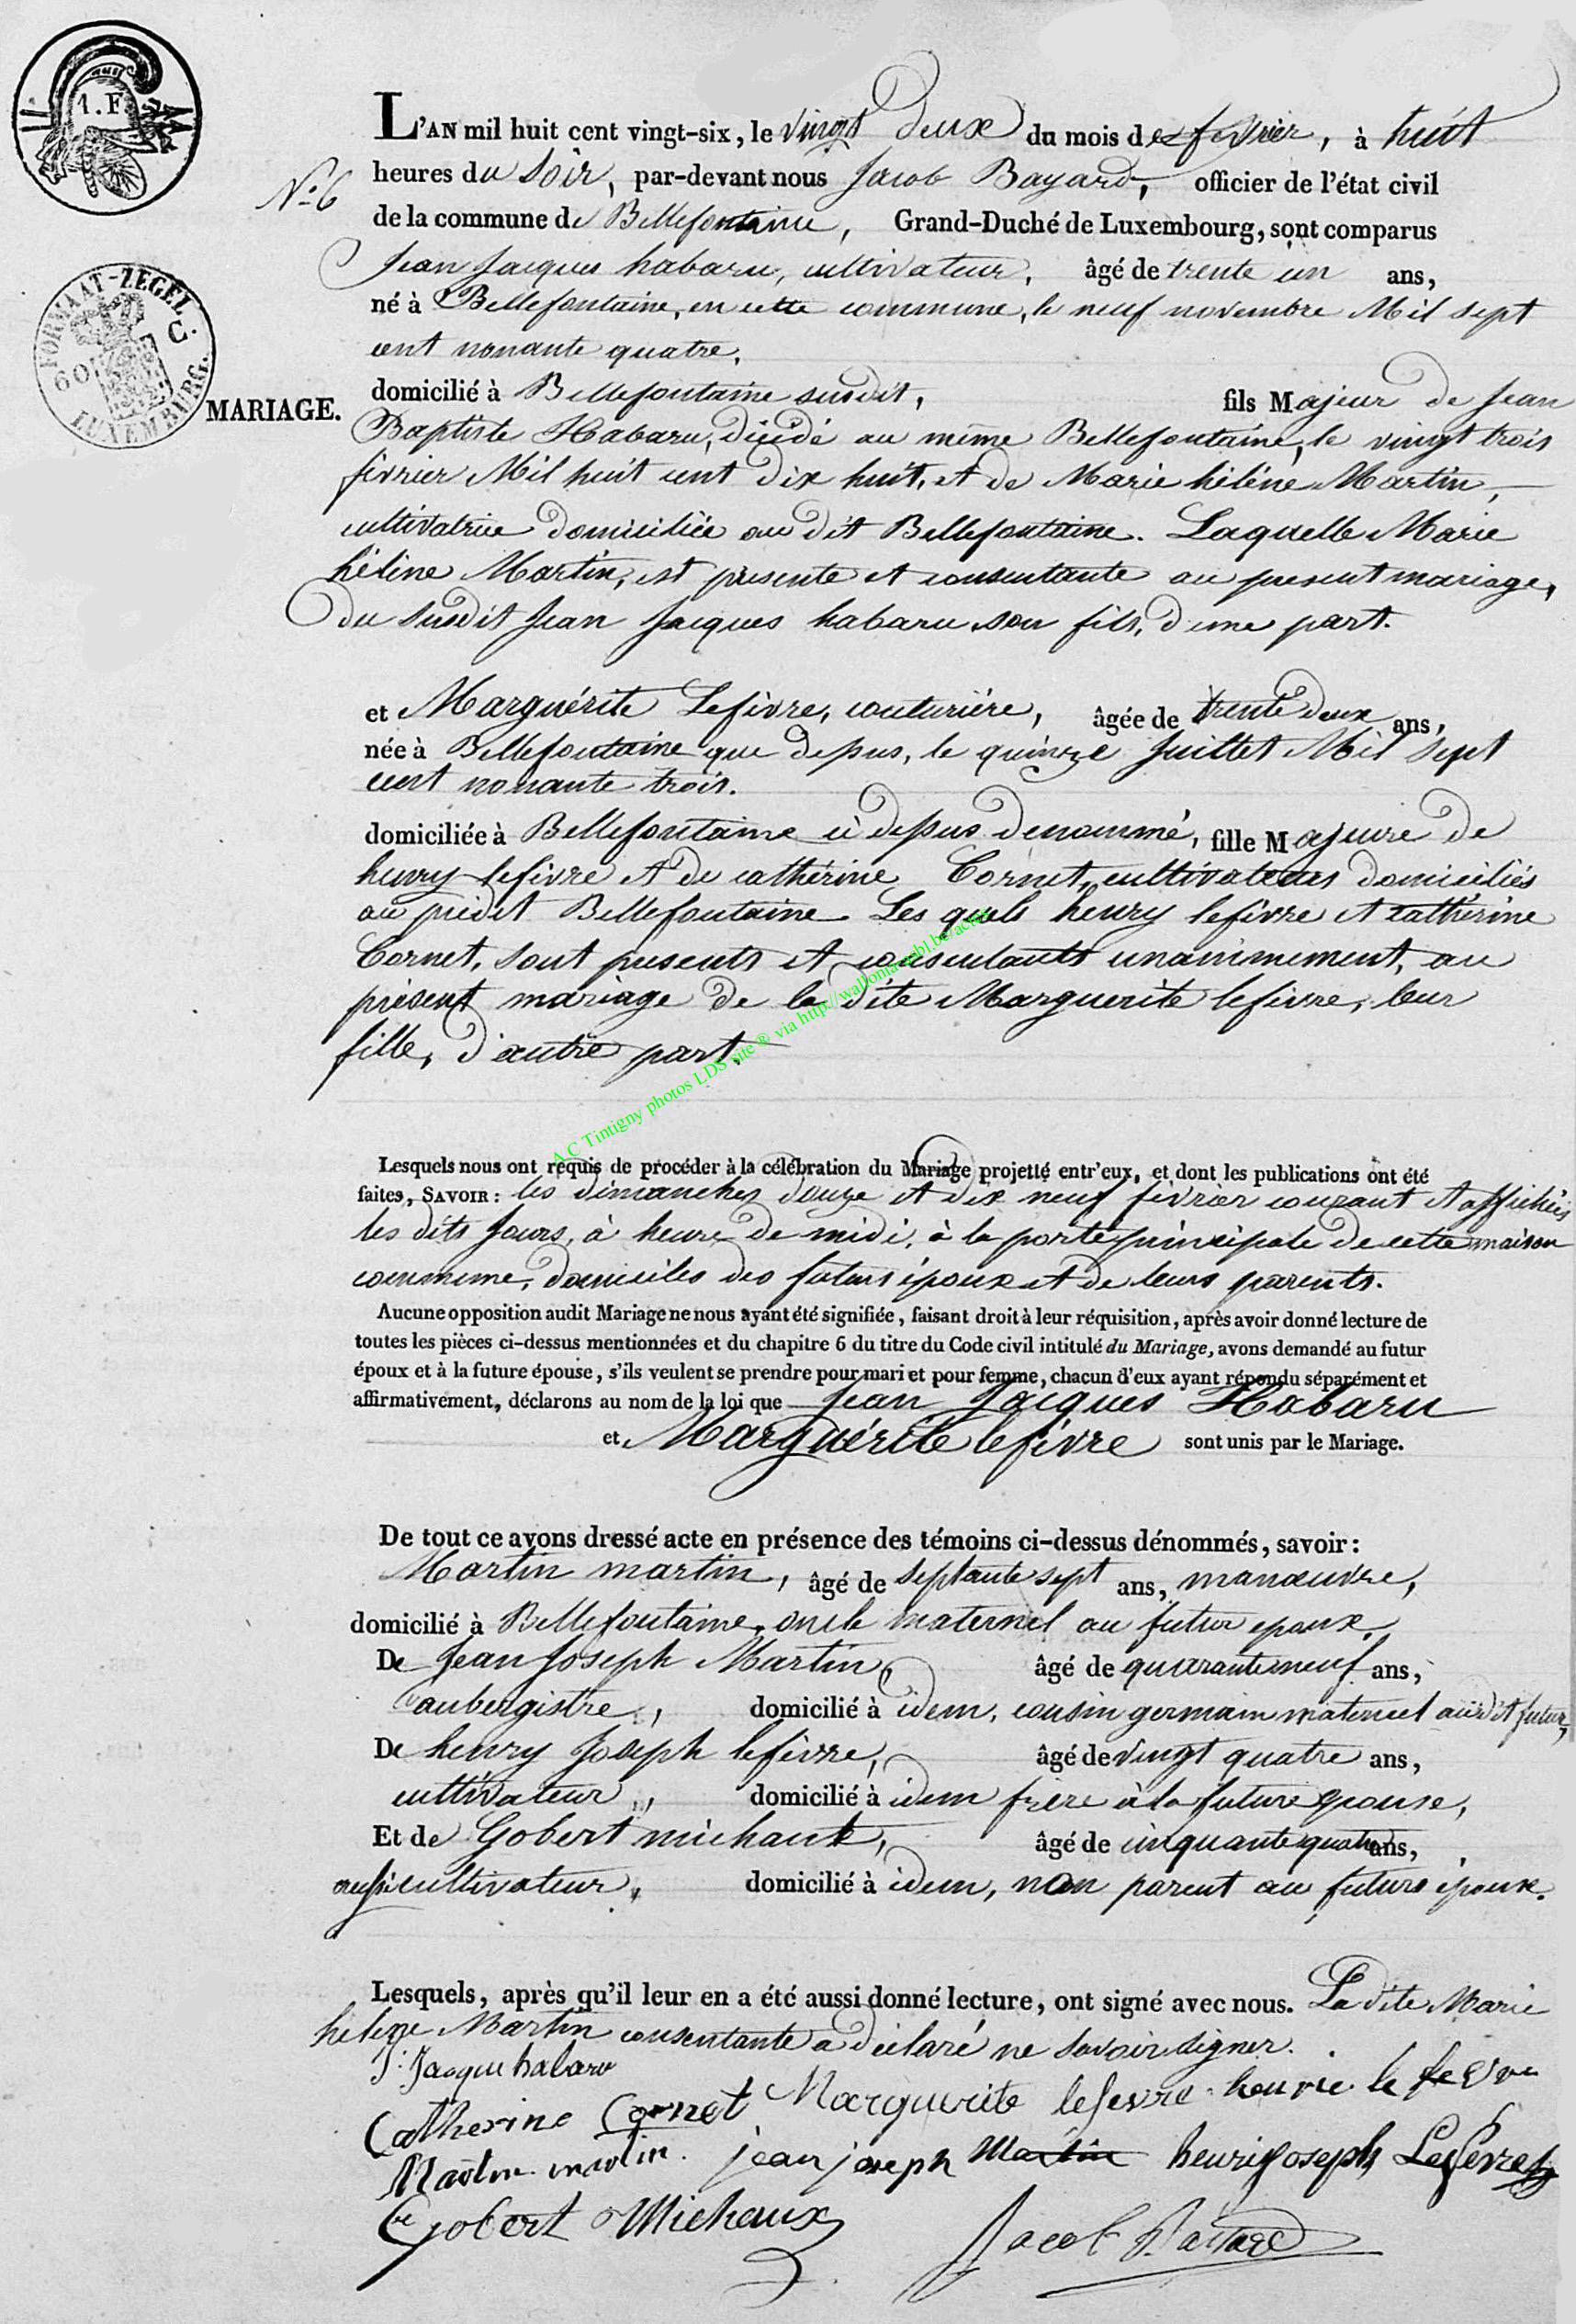 1. F.
FORMAAT-ZEGEL.
60 C.
LUXEMBURG.
N.º 6
MARIAGE.
L'AN mil huit cent vingt-six, le vingt deux du mois de fevrier, à huit
heures du soir, par-devant nous Jacob Bayard, officier de l'état civil
de la commune de Bellefontaine, Grand-Duché de Luxembourg, sont comparus
Jean Jacques habaru, cultivateur, âgé de trente un ans,
né à Bellefontaine, en cette commune, le neuf novembre Mil sept
cent nonante quatre,
domicilié à Bellefontaine susdit, fils Majeur de Jean
Baptiste Habaru, décédé au même Bellefontaine, le vingt trois
février Mil huit cent dix huit, et de Marie hélène Martin,
cultivatrice domiciliée au dit Bellefontaine. Laquelle Marie
héline Martin, est présente et consentante au present mariage,
du susdit Jean Jacques habaru son fils, d'une part.
et Marguérite Lefèvre, couturière, âgée de trente deux ans,
née à Bellefontaine que dessus, le quinze Juillet Mil sept
cent nonante trois.
domiciliée à Bellefontaine ci dessus denommé, fille Majeure de
henry lefèvre et de cathérine Cornet, cultivateurs domiciliés
au prédit Bellefontaine. Les quels henry lefèvre et cathérine
Cornet, sont presents et consentants unanimement, au
présent mariage de la dite Marguerite lefèvre, leur
fille, d'autre part,
A.C Tintigny photos LDS site ® via http://wallonia-asbl.be/actes
Lesquels nous ont requis de procéder à la célébration du Mariage projetté entr'eux, et dont les publications ont été
faites, SAVOIR : les dimanches douze et dix neuf février courant et affichées
les dits Jours, à heure de midi, à la porte principale de cette maison
commune, domiciles des futurs époux et de leurs parents.
Aucune opposition audit Mariage ne nous ayant été signifiée, faisant droit à leur réquisition, après avoir donné lecture de
toutes les pièces ci-dessus mentionnées et du chapitre 6 du titre du Code civil intitulé du Mariage, avons demandé au futur
époux et à la future épouse, s'ils veulent se prendre pour mari et pour femme, chacun d'eux ayant répondu séparément et
affirmativement, déclarons au nom de la loi que Jean Jacques Habaru
et Marguérite lefèvre sont unis par le Mariage.
De tout ce avons dressé acte en présence des témoins ci-dessus dénommés, savoir :
Martin martin, âgé de septante sept ans, manœuvre,
domicilié à Bellefontaine, oncle maternel au futur epoux,
De Jean Joseph Martin, âgé de quarante neuf ans,
aubergistre, domicilié à idem, cousin germain maternel audit futur,
De henry Joseph lefèvre, âgé de vingt quatre ans,
cultivateur, domicilié à idem frère à la future epouse,
Et de Gobert michaux, âgé de cinquante quatre ans,
aussi cultivateur, domicilié à idem, non parent au futurs époux.
Lesquels, après qu'il leur en a été aussi donné lecture, ont signé avec nous. La dite Marie
helene Martin consentante a déclaré ne savoir signer.
J: Jacque habaru
Catherine Cornet Marguerite lefevre henrie le fevre
Martin martin. jean joseph Martin henri joseph Lefevre
Gobert Michaux Jacob Baiard